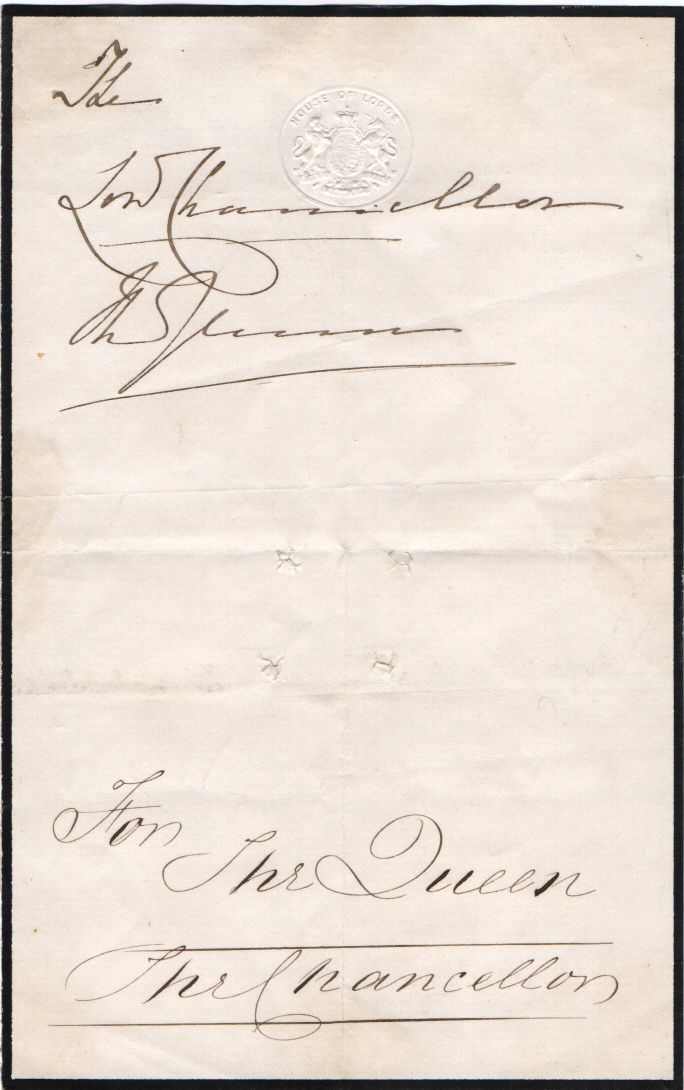 The
HOUSE OF LORDS
Lord Chancellor
The Queen
For
The Queen
The Chancellor